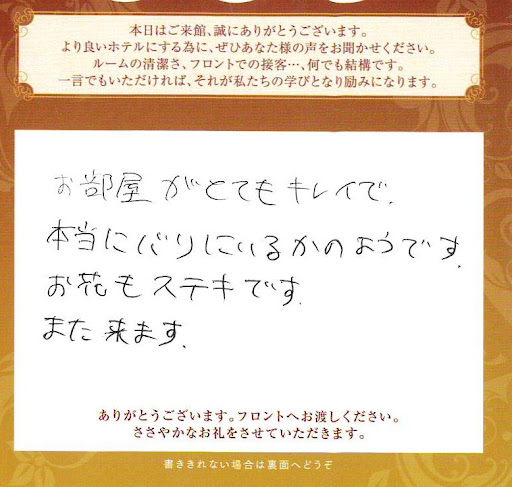 本日はご来館、誠にありがとうございます。
より良いホテルにする為に、ぜひあなた様の声をお聞かせください。
ルームの清潔さ、フロントでの接客…、何でも結構です。
一言でもいただければ、それが私たちの学びとなり励みになります。
お部屋がとてもキレイで、
本当にバリにいるかのようです。
お花もステキです。
また来ます。
ありがとうございます。フロントへお渡しください。
ささやかなお礼をさせていただきます。
書ききれない場合は裏面へどうぞ